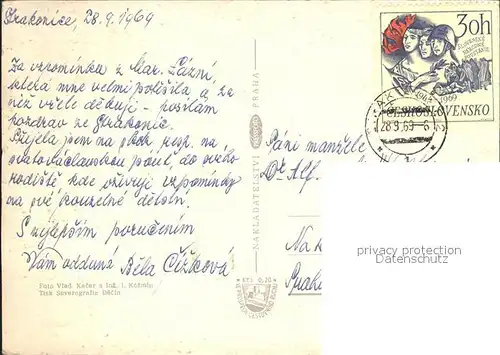 Strakonice, 28.9.1969
Za vzpomínku z Mar. Lázní,
která mne velmi potěšila a za
niž vřele děkuji – posílám
pozdrav ze Strakonic.
Přijela jsem na skok resp. na
svatováclavskou pouť, do svého
rodiště, kde oživuji vzpomínky
na své kouzelné dětství.
S nejlepším poručením
Vám oddaná Běla Čížková
Foto Vlad. Kačer a Ing. I.
Tisk Severografia Děčín
NAKLADATELSTVÍ ORBIS PRAHA
Kčs 0,20
30h
SLOVENSKÉ
NÁRODNÉ
POVSTANIE
1969
ČESKOSLOVENSKO
28.9.69-6
Páni manželé
Dr. Alf.
Na
privacy protection
Datenschutz